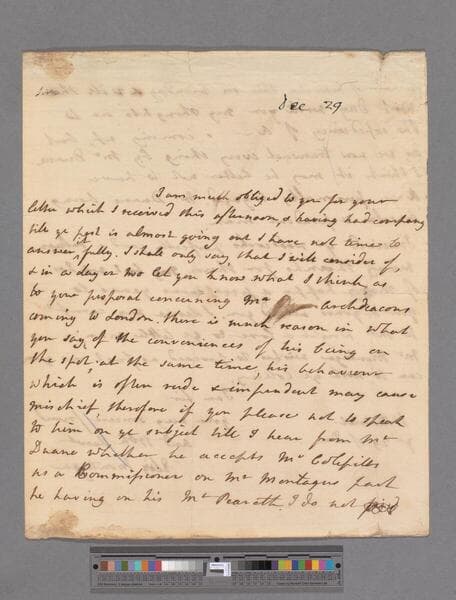 Sir
Dec 29
I am much obliged to you for your
letter which I received this afternoon, & having had company
till ye post is almost going out I have not time to
answer it fully. I shall only say that I will consider of,
& in a day or two let you know what I think, as
to your proposal concerning Mr Archdeacons
coming to London. there is much reason in what
you say, of the conveniences of his being on
the spot, at the same time, his behaviour
which is often rude & impudent may cause
mischief, therefore if you please not to speak
to him on ye subject till I hear from Mr
Duane whether he accepts Mr
as a Commissioner on Mr Montagus part
he having on his Mr I do not